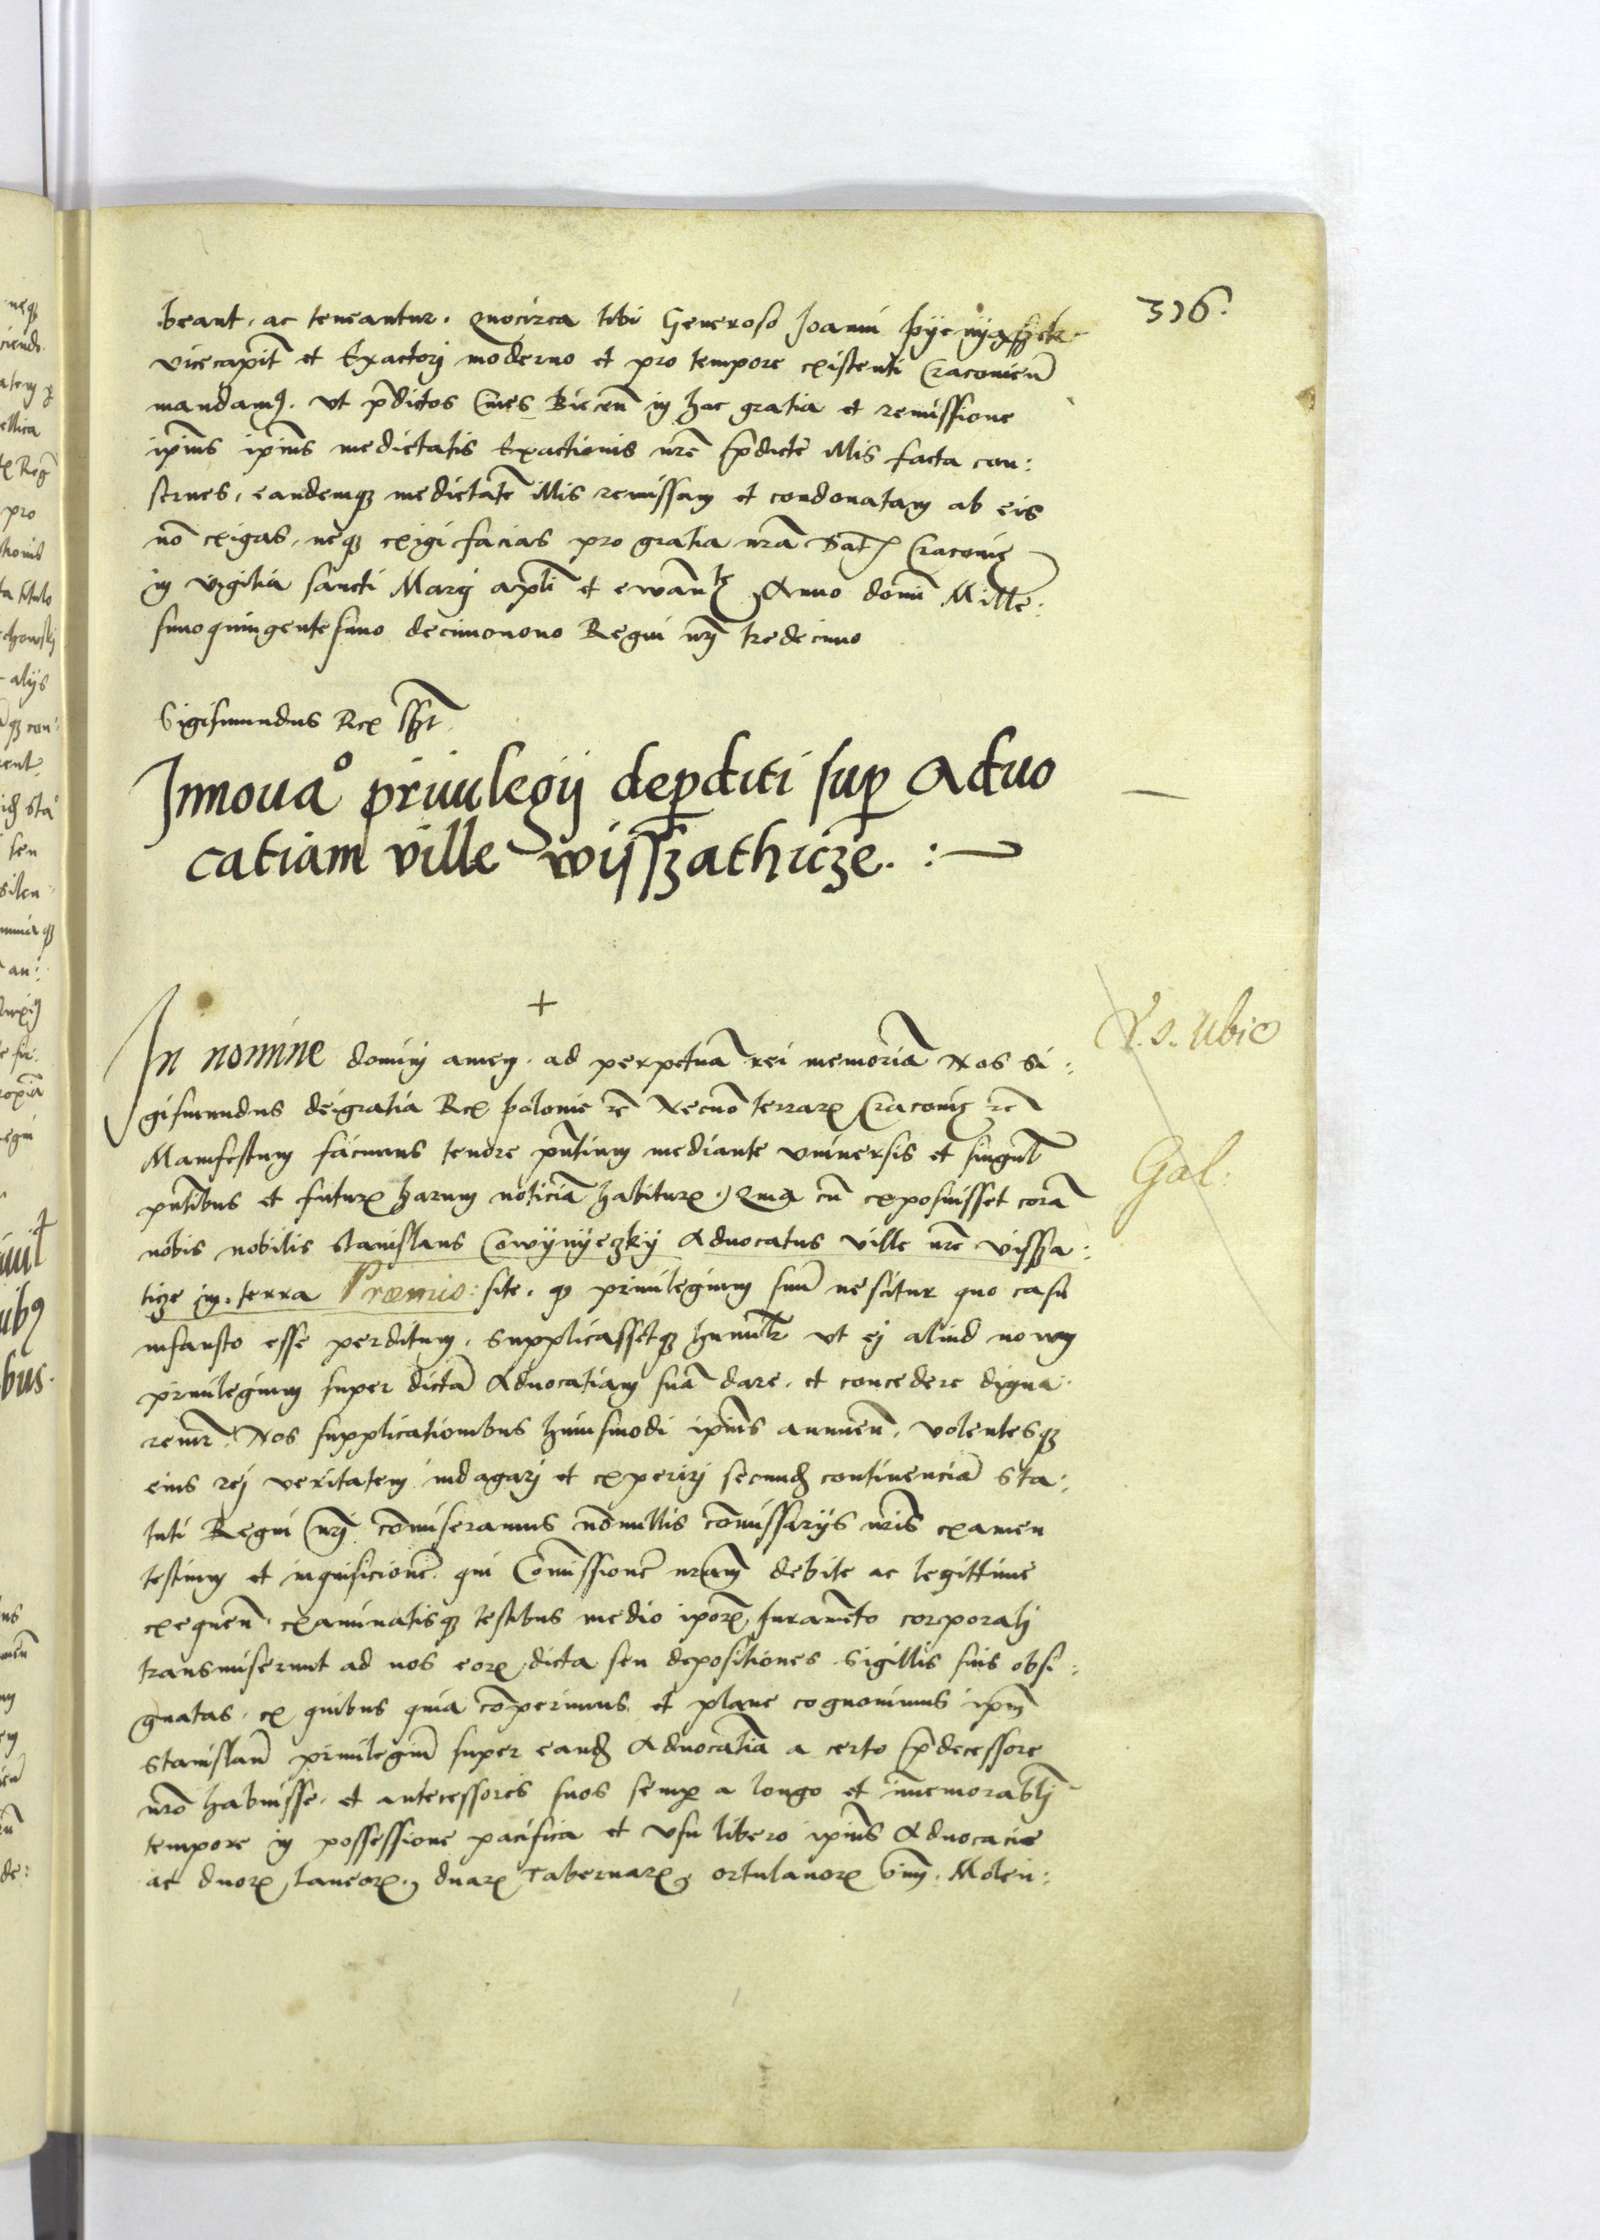 316.
beant, ac teneantur. Quocirca tibi Generoso Joanni
vicecapit̄ et Exactorj moderno et pro tempore existenti Cracovien̄
mandamꝯ. ut p̄dictos Cives Biecen̄ in hac gratia et remissione
ip̄ius ip̄ius medietatis Exactionis n̄re p̄dicte illis facta con:
serves, eandemqꝫ medietatē illis remissam et condonatam ab eis
nō exigas, neqꝫ exigi facias pro gratia n̄ra Dat̄ Cracovię
in vigilia sancti Marcj ap̄li et ewan̄ᵗᵉ Anno domī Mille:
simoquingentesimo decimonono Regni n̄rj tredecimo
Sigismundus Rex sszt
Innovaᵒ privilegij deꝑditi suꝑ Advo
catiam ville wijsszathicze. :~
+
In nomine dominj amen. ad perpetuā rei memoriā Nos Si:
gismundus deigratia Rex polonie rc̄ Necnō terraꝝ Cracovię rc̄
Manifestum facimus tenore pn̄tium mediante universis et singul̄
pn̄tibus et futuꝝ harum noticiā habituꝝ. Quia cū exposuisset corā
nobis nobilis stanislaus Cowynyeczky Advocatus ville n̄re vissza:
ticze in terra Præmis: site. qꝫ privilegium suū nescitur quo casu
infausto esse perditum. supplicassetqꝫ humilr̄ ut ej aliud novum
privilegium super dictā Advocatiam suā dare. et concedere digna:
remr̄. Nos supplicationibus huiusmodi ip̄ius annuen̄. volentesqꝫ
eius rej veritatem indagarj et experirj secundꝫ continenciā Sta:
tuti Regni n̄rj cōmiseramus nōnullis cōmissarijs n̄ris examen
testium et inquisicionē. qui Cōmissionē n̄ram debite ac legittime
exequen̄. examinatisqꝫ testibus medio ip̄oꝝ Juramēto corporalj
transmiserunt ad nos eoꝝ dicta seu depositiones sigillis suis obsi:
gnatas. ex quibus quia cōperimus et plane cognovimus ip̄m
stanislaū privilegiū super eandꝫ Advocatiā a certo p̄decessore
n̄ro habuisse. et antecessores suos semꝑ a longo et īmemorablj
tempore in possessione pacifica et usu libero ip̄ius Advocacie
ac duoꝝ laneoꝝ, duaꝝ Tabernaꝝ, ortulanoꝝ Molen:
V. s. Ubiꝫ
Gal: